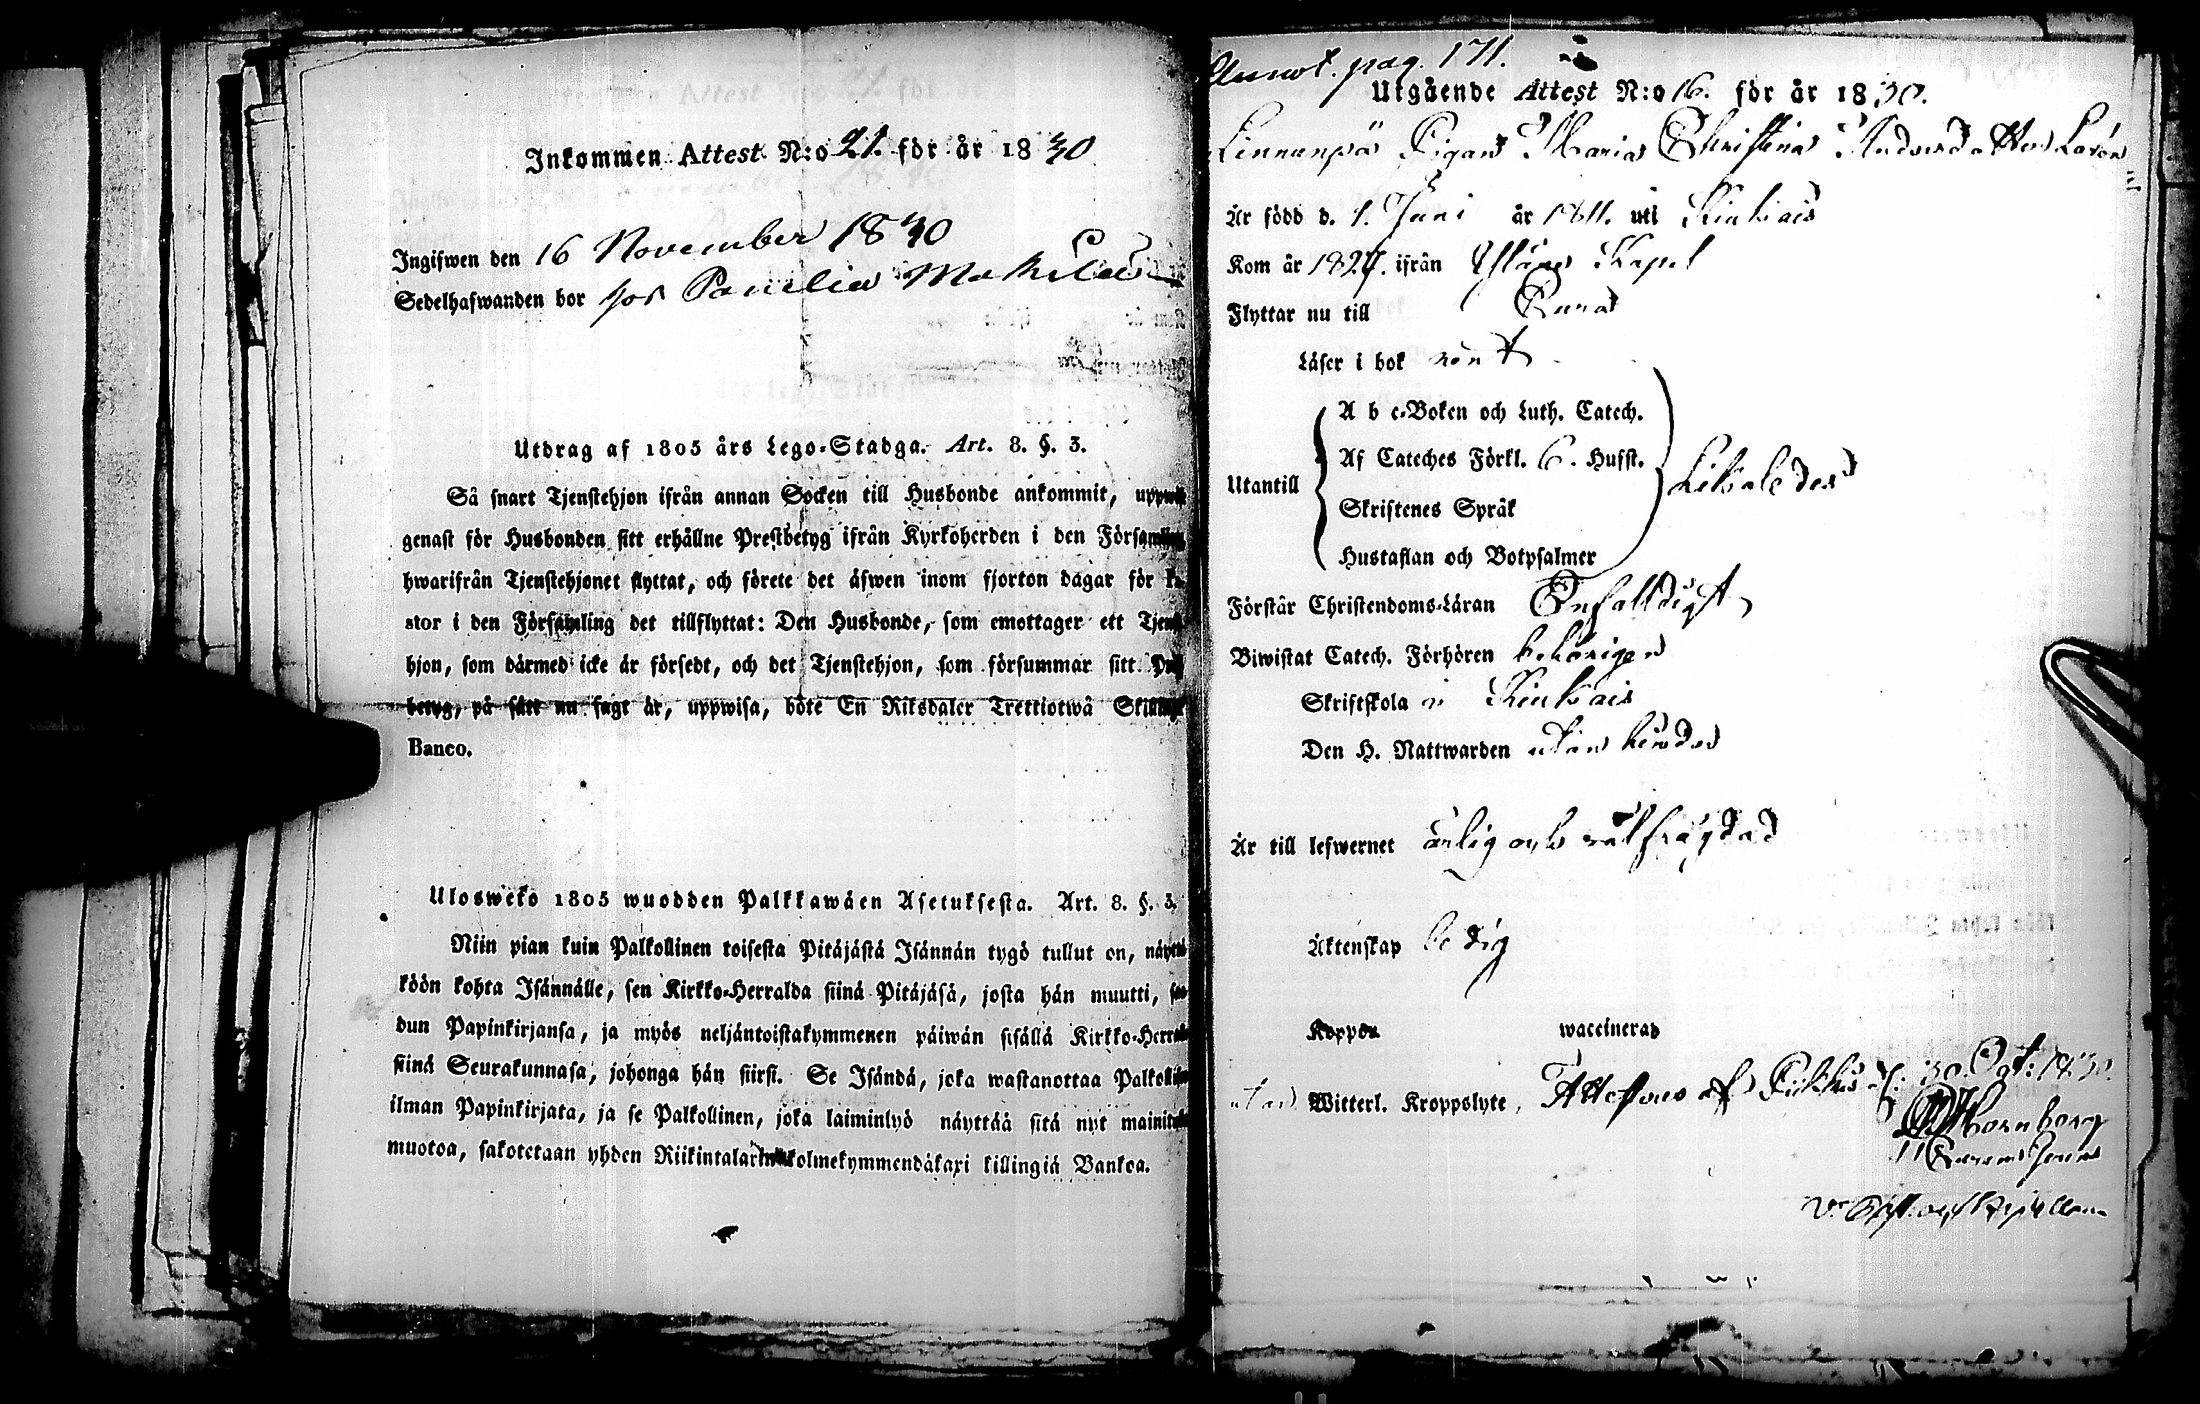 Inkommen Attest N:o 21. för år 1830
Ingifwen den 16 November 1830
Sedelhafwanden bor hos
Utdrag af 1805 års Lego-Stadga. Art. 8. §. 3.
Så snart Tjenstehjon ifrån annan Socken till Husbonde ankommit,
genast för Husbonden sitt erhållne Prestbetyg ifrån Kyrkoherden i den
hwarifrån Tjenstehjonet flyttat, och förete det äfwen inom fjorton dagar för
stor i den Församling det tillflyttat: Den Husbonde, som emottager ett
hjon, som därmed icke är försedt, och det Tjenstehjon, som försummar sitt
betyg, på sätt nu sagt är, uppwisa, böte En Riksdaler Trettiotwå
Banco.
Uloswetö 1805 wuodden Palkkawäen Asetuksesta. Art. 8. §. 3.
Niin pian kuin Palkollinen toisesta Pitäjästä Isännän tygö tullut on,
köön kohta Isännälle, sen Kirkko-Herralda siinä Pitäjäsä, josta hän muutti,
dun Papinkirjansa, ja myös neljäntoistakymmenen päiwän sisällä
siinä Seurakunnasa, johonga hän siirsi. Se Isändä, joka wastanottaa
ilman Papinkirjata, ja se Palkollinen, joka laiminlyö näyttää sitä nyt
muotoa, sakotetaan yhden Riikintalarin kolmekymmendäkaxi killingiä Bankoa.
Annot. pag. 171.
Utgående Attest N:o 16. för år 1830.
Pigan Maria Christina Andersdotter
Är född d. 1. Juni år 1811. uti Kiukais
Kom år ifrån Kapel
Flyttar nu till Eura
Läser i bok rent
Utantill
A b c-Boken och Luth. Catech.
Af Cateches Förkl. 6. Hufst.
Skriftenes Språk
Hustaflan och Botpsalmer
Likaledes
Förstår Christendoms-Läran Enfalldigt
Biwistat Catech. Förhören behörigen
Skriftskola i Kiukais
Den H. Nattwarden utan hinder
Är till lefwernet ärlig och
Äktenskap ledig
Koppor waccinerad
utan Witterl. Kroppslyte, Attesteras af d. 30 Oct: 1830.